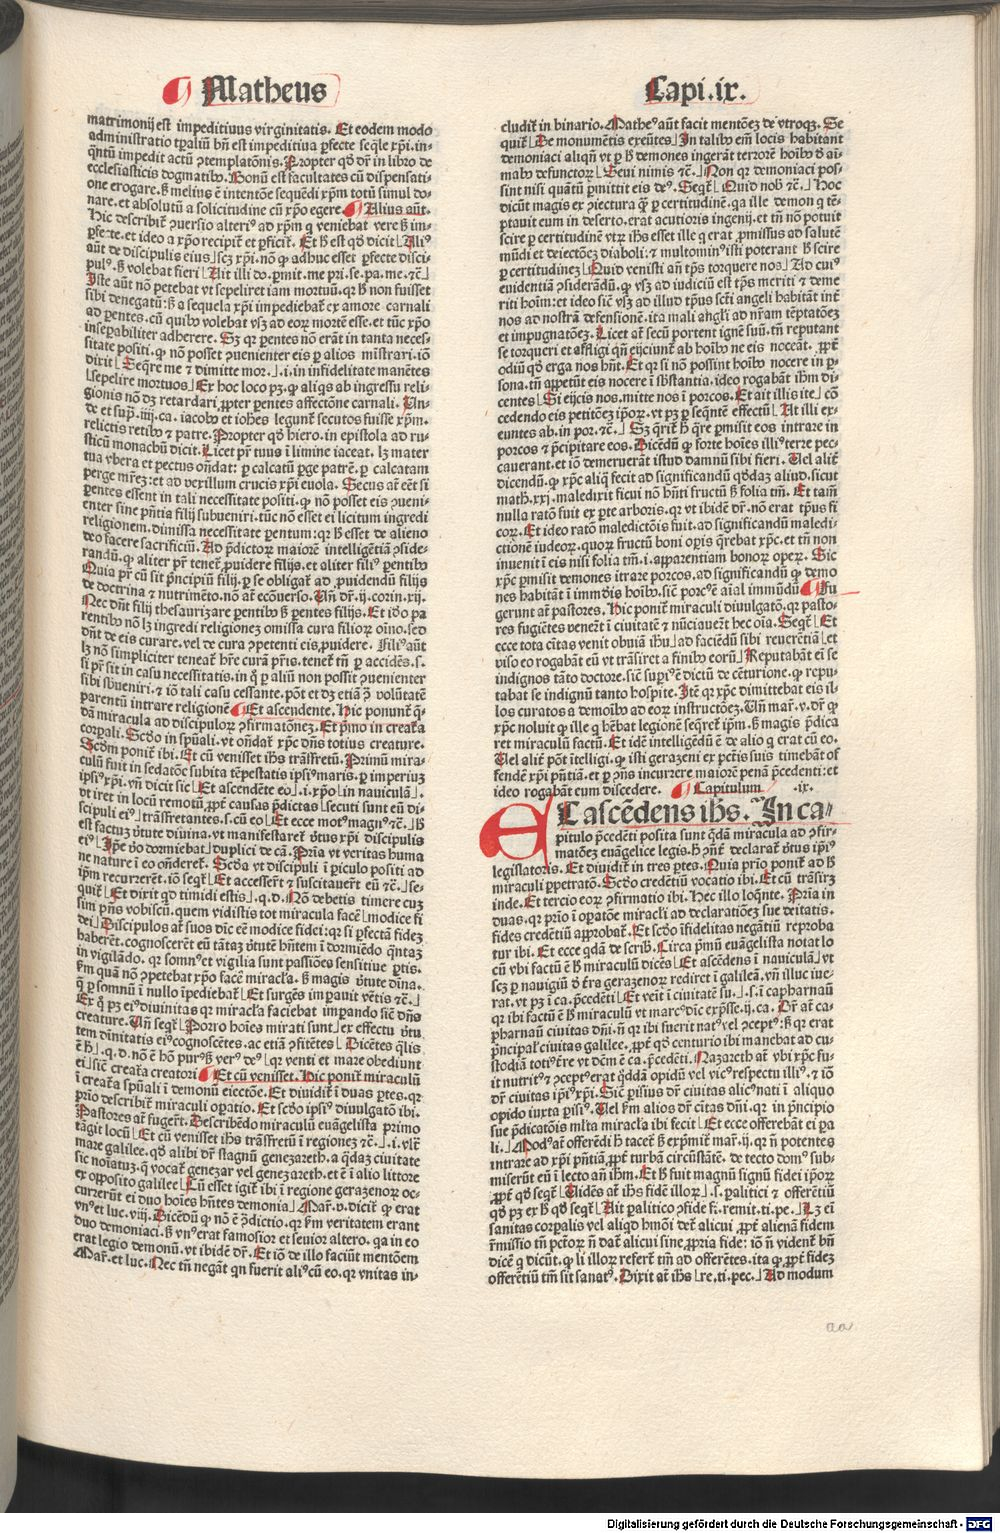 Matheus
Capi.ix.
matrimonij est impeditiuus virginitatis. Et eodem modo
administratio tp̃aliũ bñ est impeditiua ꝑfecte seq̃le xp̃i. in-
ecclesiasticis dogmatibꝰ. Bonũ est facultates cũ dispensati-
one erogare. sꝫ melius ẽ intentõe sequẽdi xp̃m totũ simul do-
nare. et absolutũ a solicitudine cũ xp̃o egere. Alius aũt.
aũt de discipulis eius scꝫ xp̃i. nõ ꝙ adhuc esset ꝑfecte disci-
Iste aũt nõ petebat vt sepeliret iam mortuũ. qꝛ h̃ non fuisset
sibi denegatũ: sꝫ a sequela xp̃i impediebat̃ ex amore carnali
inseꝑabiliter adherere. Sꝫ qꝛ ꝑentes nõ erãt in tanta neces-
sitate positi. ꝙ nõ posset ꝓuenienter eis ꝑ alios mĩstrari. iõ
dixit Seq̃re me ⁊ dimitte mor. .i. in infidelitate manẽtes
sepelire mortuos Ex hoc loco pꝫ. ꝙ aliq̃s ab ingressu reli-
gionis nõ dꝫ retardari ꝓpter ꝑentes affectõne carnali. Un-
relictis retibꝰ ⁊ patre. Propter qð hiero. in epistola ad ru-
sticũ monachũ dicit. Licet pr̃ tuus ĩ limine iaceat. lꝫ mater
tua vbera et pectus oñdat: ꝑ calcatũ ꝑge patrẽ. ꝑ calcatam
perge mr̃eꝫ: et ad vexillum crucis xp̃i euola. Secus at̃ eẽt si
ꝑentes essent in tali necessitate positi. ꝙ nõ posset eis ꝓueni-
enter sine pñtia filij subueniri. tũc nõ esset ei licitum ingredi
religionem. dimissa necessitate ꝑentum: qꝛ h̃ esset de alieno
deo facere sacrificiũ. Ad p̃dictoꝝ maiorẽ intelligẽtiã ꝯside-
randũ. ꝙ aliter pr̃ tenet̃ ꝓuidere filijs. et aliter filiꝰ ꝑentibꝰ
Quia pr̃ cũ sit p̃ncipiũ filij. ꝑ se obligat̃ ad ꝓuidendũ filijs
de doctrina ⁊ nutrimẽto. nõ at̃ ecõuerso. Uñ dr̃ .ij. corin. xij.
Nec dñt filij thesaurizare ꝑentibꝰ sꝫ ꝑentes filijs. Et iðo pa
rentibꝰ nõ lꝫ ingredi religioneꝫ omissa cura filioꝝ oĩno. sed
dñt de eis curare. vel de cura ꝯpetenti eis ꝓuidere. Filiꝰ aũt
lꝫ nõ simpliciter teneat̃ hr̃e curã pr̃is. tenet̃ tñ ꝑ accidẽs .s.
si pr̃ sit in casu necessitatis. in q̊ ꝑ aliũ non possit ꝓuenienter
sibi sb̃ueniri. ⁊ iõ tali casu cessante. põt et dꝫ etiã p̃ volũtatẽ
parentũ intrare religionẽ Et ascendente. Hic ponunt̃ q̃-
dã miracula ad discipuloꝝ ꝯfirmatõneꝫ. Et p̃mo in creat̃a
corꝑali. Scðo in sp̃uali. vt oñdat̃ xp̃c dñs totius creature.
Scðm ponit̃ ibi. Et cũ venisset ihs̃ trãsfretũ. Primũ mira-
culũ fuit in sedatõe subita tẽpestatis ipsiꝰ maris. ꝑ imperiuꝫ
ipsiꝰ xp̃i. vñ dicit sic Et ascendẽte eo .i. xp̃o in nauiculã.
vt iret in locũ remotũ ꝓpt̃ causas p̃dictas secuti sunt eũ di-
scipuli eiꝰ trãsfretantes .s. cũ eo Et ecce motꝰ magnꝰ ⁊c̃. h̃
est factuꝫ v̾tute diuina. vt manifestaret̃ v̾tus xp̃i discipulis
eiꝰ Ip̃e v̾o dormiebat duplici de cã. Pria vt veritas huma
ne nature ĩ eo oñderet̃. Scða vt discipuli ĩ ꝑiculo positi ad
ip̃m recurrerẽt. iõ seqt̃ Et accesserũt ⁊ suscitauert̃ eũ ⁊c̃. se-
quit̃ Et dixit qd timidi estis .q.d. Nõ debetis timere cuꝫ
sim p̃ñs vobiscũ. quem vidistis tot miracula facẽ modice fi
dei Discipulos at̃ suos dic̃ eẽ modice fidei: qꝛ si ꝑfectã fideꝫ
haberẽt. cognoscerẽt eũ tãtaꝫ v̾tutẽ hñtem ĩ dormiẽdo q̃ntaꝫ
in vigilãdo. qꝛ somnꝰ et vigilia sunt passiões sensitiue ꝑtis.
creature. Uñ seqt̃ Porro hoĩes mirati sunt ex effectu v̾tu
tem diuinitatis ei cognoscẽtes. ac etiã ꝯfitẽtes Dicẽtes q̃lis
ẽ h̃ .q.d. nõ ẽ hõ purꝰ sꝫ verꝰ deꝰ qꝛ venti et mare obediunt
ei sic̃ creat̃a creatori Et cũ venisset. Hic ponit̃ miraculũ
ĩ creat̃a sp̃uali ĩ demonũ eiectõe. Et diuidit̃ ĩ duas ꝑtes. qꝛ
prio describit̃ miraculi oꝑatio. Et scðo ipsiꝰ diuulgatõ ibi.
Pastores at̃ fugerũt. Describẽdo miraculũ euãgelista primo
tãgit locũ Et cũ venisset ihs̃ trãsfretũ ĩ regionem ⁊c̃. .i. vlt̃
mare galilee. qð alibi dr̃ stagnũ genezareth. a q̃daꝫ ciuitate
sic noĩatuꝫ. q̃ vocat̃ genezar vel genezareth. et ẽ ĩ alio littore
ex opposito galilee Cũ esset igit̃ ibi ĩ regione gerazenoꝝ oc-
currerũt ei duo hoĩes hñtes demonia Mar̃. v. dicit̃ ꝙ erat
vnꝰ et luc. viij. Dicẽdũ ꝙ nõ ẽ ꝯ̃dictio. qꝛ ẜm veritatem erant
duo demoniaci. sꝫ vnꝰ erat famosior et seuior altero. qa in eo
erat legio demonũ. vt ibidẽ dr̃. Et iõ de illo faciũt mentõem
Mar̃. et luc. Nec tñ negãt qn fuerit aliꝰ cũ eo. qꝛ vnitas in-
cludit̃ in binario. Matheꝰ aũt facit mentõeꝫ de vtroqꝫ. Se
quit̃ De monumẽtis exeũtes In talibꝰ eñi locis habitant
demoniaci aliqñ vt ꝑ h̃ demones ingerãt terrorẽ hoĩbꝰ ð ai̾-
mabꝰ defunctoꝝ Seui nimis ⁊c̃. Non qꝛ demoniaci pos-
sint nisi quãtũ ꝑmittit eis deꝰ. Seqt̃ Quid nob̾ ⁊c̃. Hoc
dicũt magis ex ꝯiectura q̃ ꝑ certitudinẽ. qa ille demon q tẽ-
ptauit eum in deserto. erat acutioris ingenij. et tñ nõ potuit
scire ꝑ certitudinẽ vtꝝ ihs̃ esset ille q erat ꝓmissus ad salutẽ
mũdi et deiectõeꝫ diaboli. ⁊ multominꝰ isti poterant h̃ scire
ꝑ certitudineꝫ Quid venisti añ tp̃s torquere nos Ad cuiꝰ
euidentiã ꝯsiderãdũ. ꝙ vsqꝫ ad iudiciũ est tp̃s meriti ⁊ deme
riti hoĩm: et ideo sic̃ vsqꝫ ad illud tp̃us sc̃ti angeli habitãt int̃
nos ad nostrã defensionẽ. ita mali angl̃i ad nr̃am tẽptatõeꝫ
et impugnatõeꝫ. Licet at̃ secũ portent ignẽ suũ. tñ reputant
se torqueri et affligi qñ eijciunt̃ ab hoĩbꝰ ne eis noceãt. ꝓpt̃
odiũ qð erga nos hñt. Et qꝛ si nõ possint hoĩbꝰ nocere in ꝑ-
sona. tñ appetũt eis nocere ĩ sb̃stantia. ideo rogabãt ihm̃ di-
centes Si eijcis nos. mitte nos ĩ porcos. Et ait illis ite cõ
cedendo eis petitõeꝫ ipoꝝ. vt pꝫ ꝑ seq̃ntẽ effectũ At illi ex-
euntes ab. in por. ⁊c̃. Sꝫ q̃rit̃ h̃ q̃re ꝑmisit eos intrare in
porcos ⁊ p̃cipitare eos. Dicẽdũ ꝙ forte hoĩes illiꝰ terre pec-
cauerant. et iõ demeruerãt istud damnũ sibi fieri. Uel alit̃
dicendũ. ꝙ xp̃c aliq̃ fecit ad significandũ qðdaꝫ aliud. sicut
math. xxj. maledixit ficui nõ hñti fructũ sꝫ folia tm̃. Et tam̃
nulla ratõ fuit ex ꝑte arboris. qꝛ vt ibidẽ dr̃. nõ erat tp̃us fi
coꝝ. Et ideo ratõ maledictõis fuit. ad significandũ maledi-
ctionẽ iudeoꝝ. quoꝝ fructũ boni oꝑis q̃rebat xp̃c. et tñ non
inuenit ĩ eis nisi folia tm̃ .i. apparentiam bonoꝝ oꝑum. Sic
xp̃c ꝑmisit demones ĩtrare porcos. ad significandũ ꝙ demo
nes habitãt ĩ immũdis hoĩbꝰ. sic̃ porcꝰ ẽ ai̾al immũdũ Fu
gerunt at̃ pastores. Hic ponit̃ miraculi diuulgatõ. qꝛ pasto-
res fugiẽtes venert̃ ĩ ciuitatẽ ⁊ nũciauert̃ hec oĩa. Seqt̃ Et
ecce tota ciuitas venit obuiã ihũ ad faciẽdũ sibi reuerẽtiã et
viso eo rogabãt eũ vt trãsiret a finibꝰ eorũ Reputabãt ei̾ se
indignos tãto doctore. sic̃ supiꝰ ẽ dictũ de cẽturione. ꝙ repu-
tabat se indignũ tanto hospite. Itẽ qꝛ xp̃c dimittebat eis il-
los curatos a demoĩbꝰ ad eoꝝ instructõeꝫ. Uñ mar̃. v. dr̃ ꝙ
xp̃c noluit ꝙ ille q̃ hẽbat legionẽ seq̃ret̃ ip̃m. sꝫ magis p̃dica
ret miraculũ factũ. Et idẽ intelligẽdũ ẽ de alio q erat cũ eo.
Uel alit̃ põt ĩtelligi. ꝙ isti gerazeni ex pctĩs suis timebãt of
fendẽ xp̃i p̃ñtiã. et ꝑ ꝯñs incurrere maiorẽ penã p̃cedenti: et
ideo rogabãt eum discedere. Capitulum .ix.
Et ascẽdens ihs̃. In ca-
pitulo p̃cedẽti posita sunt q̃dã miracula ad ꝯfir-
matõeꝫ euãgelice legis. h̃ ꝯñt̃ declarat̃ v̾tus ip̃iꝰ
legislatoris. Et diuidit̃ in tres ꝑtes. Quia prio ponit̃ ad h̃
miraculi ꝑpetratõ. Scðo credẽtiũ vocatio ibi. Et cũ trãsirꝫ
inde. Et tercio eoꝝ ꝯfirmatio ibi. Hec illo loq̃nte. Pria in
duas. qꝛ prio ĩ oꝑatõe miracl̃i ad declaratiõeꝫ sue deitatis.
fides credẽtiũ approbat̃. Et scðo ĩfidelitas negãtiũ reproba
tur ibi. Et ecce qdã de scrib̾. Circa p̃mũ euãgelista notat lo
cũ vbi factũ ẽ h̃ miraculũ dicẽs Et ascẽdens ĩ nauiculã vt
scꝫ ꝑ nauigiũ ð t̾ra gerazenoꝝ rediret ĩ galileã. vñ illuc iue-
rat. vt pꝫ ĩ ca. p̃cedẽti Et veit̃ ĩ ciuitatẽ su. .s. ĩ capharnaũ
qꝛ ibi factũ ẽ h̃ miraculũ vt marcꝰ dic̃ exp̃sse .ij. ca. Dr̃ at̃ ca-
pharnaũ ciuitas dñi. nõ qꝛ ibi fuerit natꝰ vel ꝯceptꝰ: sꝫ qꝛ erat
p̃ncipal̾ ciuitas galilee. ꝓpt̃ qð centurio ibi manebat ad cu-
stodiã totiꝰ t̾re vt dc̃m ẽ ca. p̃cedẽti. Nazareth at̃ vbi xp̃c fu-
it nutritꝰ ⁊ ꝯceptꝰ erat q̃ddã opidũ vel vicꝰ respectu illiꝰ. ⁊ iõ
dr̃ ciuitas ipiꝰ xp̃i. Sic̃ parisius dr̃ ciuitas alicꝰ nati ĩ aliquo
opido iuxta parisiꝰ. Uel ẜm alios dr̃ cĩtas dñi. qꝛ in p̃ncipio
sue p̃dicatõis ml̃ta miracl̃a ibi fecit Et ecce offerebãt ei pa
li. Modꝰ at̃ offerẽdi h̃ tacet̃ sꝫ exp̃mit̃ mar̃. ij. qꝛ ñ potentes
intrare ad xp̃i pñtiã ꝓpt̃ turbã circũstãtẽ. de tecto domꝰ sub-
miserũt eũ ĩ lecto añ ihm̃. Et h̃ fuit magnũ signũ fidei ip̃oꝝ
ꝓpt̃ qð seqt̃ Uidẽs at̃ ihs̃ fidẽ illoꝝ .s. palitici ⁊ offerẽtiũ
qð pꝫ ex h̃ qð seqt̃ Ait palitico ꝯfide fi. remit. ti. pe. Lꝫ ei̾
sanitas corꝑalis vel aliqð hmõi det̃ alicui ꝓpt̃ alienã fidem
r̃missio tñ pctõꝝ ñ dat̃ alicui sine ꝓpria fide: iõ ñ vident̃ bñ
dicẽ q dicũt. ꝙ li illoꝝ refert̃ tm̃ ad offerẽtes. ita ꝙ ꝓpt̃ fideꝫ
offerẽtiũ tm̃ sit sanatꝰ. Dixit at̃ ihs̃ re. ti. pec. Ad modum
aa
Digitalisierung gefördert durch die Deutsche Forschungsgemeinschaft - DFG